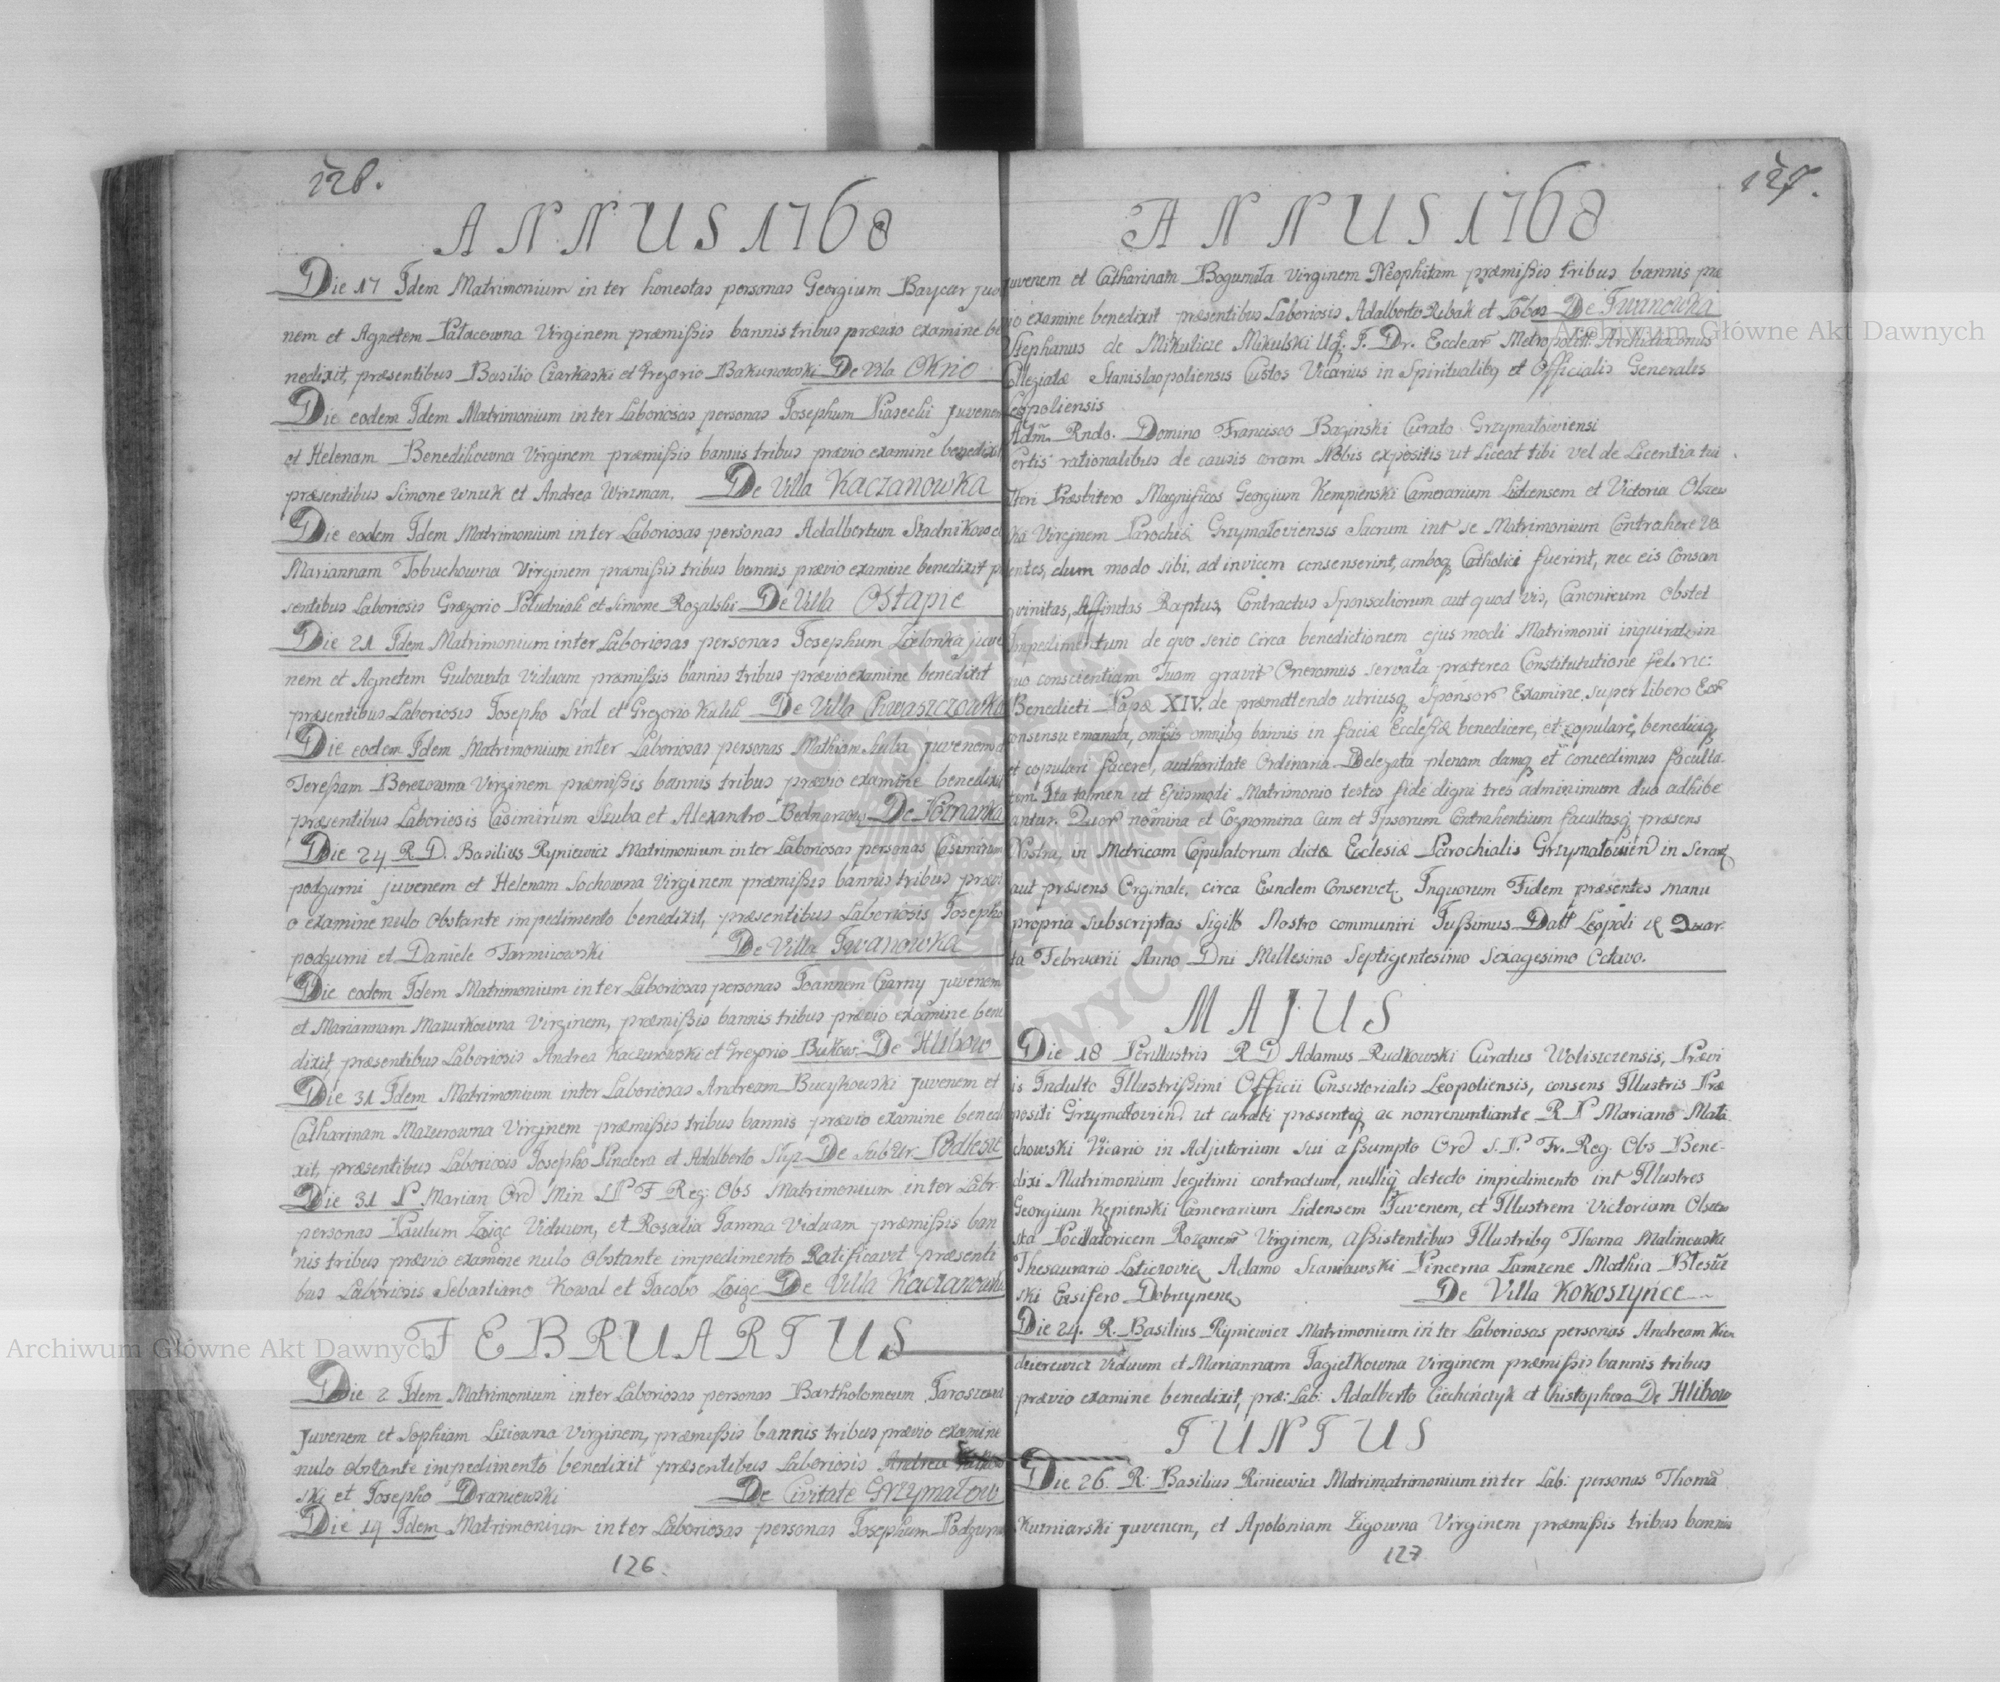 126.
ANNUS 1768
Die 17 Idem Matrimonium inter honestas personas Georgium Baycar juve
nem et Agnetem Pałacowna Virginem præmissis bannis tribus prævio examine be
nedixit, præsentibus Basilio Czarkaski et Gregorio Bakunowski De Vila Okno
Die eodem Idem Matrimonium inter Laboriosas personas Josephum Piasecki Juvenem
et Helenam Benedikowna Virginem præmissis bannis tribus prævio examine benedixit
præsentibus Simone Wnuk et Andrea Wirzman. De Villa Kaczanowka
Die eodem Idem Matrimonium inter Laboriosas personas Adalbertum Stadnikow et
Mariannam Tobuchowna Virginem præmissis tribus bannis prævio examine benedixit præ
sentibus Laboriosis Gregorio Poludniak et Simone Rozalski De Villa Ostapie
Die 21 Idem Matrimonium inter Laboriosas personas Josephum Zielonka juve
nem et Agnetim Viduam præmissis bannis tribus prævio examine benedixit
præsentibus Laboriosis Josepho Sral et Gregorio De Villa Chwaszczowka
Die eodem Idem Matrimonium inter Laboriosas personas Mathiam Szuba juvenem et
Teressam Berezowna Virginem præmissis bannis tribus prævio examine benedixit
præsentibus Laboriosis Casimirum Szuba et Alexandro Bednarzow De Poznanka
Die 24 R. D. Basilius Ryniewicz Matrimonium inter Laboriosas personas Casimirum
podgurni juvenem et Helenam Sochowna Virginem præmissis bannis tribus prævi
o examine nulo obstante impedimento benedixit, præsentibus Laboriosis Josepho
podgurni et Daniele Farmirowski De Villa Iwanowka
Die eodem Idem Matrimonium inter Laboriosas personas Joannem Czarny juvenem
et Mariannam Mazurkowna Virginem, præmissis bannis tribus prævio examine bene
dixit, præsentibus Laboriosis Andrea Kaczurowski et Gregorio Bukow: De Hlibow
Die 31 Idem Matrimonium inter Laboriosas Andream Bucykowski Juvenem et
Catharinam Mazurowna Virginem præmissis tribus bannis prævio examine benedi
xit, præsentibus Laboriosis Josepho Pindera et Adalberto De Subur. Podlesie
Die 31 P Marian Ord Min S P F Reg: Obs Matrimonium inter Labr.
personas Paulum Zaige Viduum, et Rosalia Jamna Viduam præmissis ban
nis tribus prævio examine nulo obstante impedimento Ratificavit præsenti
bus Laboriosis Sebastiano Kowal et Jacobo Zaige De Villa Kaczanowka
FEBRUARIUS
Die 2 Idem Matrimonium inter Laboriosas personas Bartholomeum Jaroszewski
Juvenem et Sophiam Lisiowna Virginem, præmissis bannis tribus prævio examine
nulo obstante impedimento benedixit præsentibus Laboriosis Andrea
ski et Josepho Draniewski De Civitate Grzymałow
Die 19 Idem Matrimonium inter Laboriosas personas Josephum Podgurni
126.
127.
ANNUS 1768
Juvenem et Catharinam Bogumiła Virginem Neophitam præmissis tribus bannis præ
io examine benedixit præsentibus Laboriosis Adalberto Rebak et De Iwanowka
Stephanus de Mikulicze Mikulski U. J. Dr. Eccleæ Metropolit. Archidiaconus
Collegiatæ Stanislaopoliensis Custos Vicarius in Spiritualibq et Officialis Generales
Leopoliensis
Adm. Rndo. Domino Francisco Baginski Curato Grzymałowiensi
Certis rationalibus de causis coram Nobis expositis ut liceat tibi vel de Licentia tui
Presbitero Magnificos Georgium Kempienski Camerarium Lidensem et Victoria Olszew
ska Virginem Parochiæ Grzymałoviensis Sacrum int se Matrimonium Contrahere Va
entes, dum modo sibi, ad invicem consenserint, amboq Catholici fuerint, nec eis Consan
gvinitas, Affinitas Raptus, Contractus Sponsaliorum aut quod vis, Canonicum obstet
Impedimentum de quo serio circa benedictionem ejus modi Matrimonii inquirat in
quo conscientiam Tuam gravit Oneramus servata præterea Constitututione fel. rec:
Benedicti Papæ XIV. de præmittendo utriusq Sponsor Examine, super libero Eor
consensu emanata, omissis omnibq bannis in faciæ Ecclesiæ benedicere, et copulare, benediciq
et copulari facere, authoritate Ordinaria Delegata plenam damq et concedimus faculta
tem. Ita tamen ut Ejusmodi Matrimonio testes fide digni tres ad minimum duo adhibe
antur. Quor nomina et Cognomina Cum et Ipsorum Contrahentium facultasq præsens
Nostra, in Metricam Copulatorum dictæ Ecclesiæ Parochialis Grzymałovien in
aut præsens Orginale, circa Eandem Conservet. Inquorum Fidem præsentes manu
propria subscriptas Sigillo Nostro communiri Jussimus Datt Leopoli Quar
ta Februarii Anno Dni Millesimo Septigentesimo Sexagesimo Octavo.
MAJUS
Die 18 Perillustris R D Adamus Rudkowski Curatus Woliszczensis, Prævi
is Indulto Illustrissimi Officii Consistorialis Leopoliensis, consens Illustris Præ
positi Grzymałovien. ut curati præsenteq ac nonrenuntiante R P Mariano Mali
chowski Vicario in Adjutorium sui assumpto Ord S. P. Fr. Reg. Obs Bene-
dixi Matrimonium legitimi contractum, nulliq detecto impedimento int Illustres
Georgium Kępienski Camerarium Lidensem Juvenem, et Illustrem Victoriam Olszew
ska Pocillatoricem Rozanem Virginem, Assistentibus Illustribq Thoma Malinowski
Thesaurario Laticzovie Adamo Szaniawski Pincerna Mathia
ski Ensifero Dobrzynens De Villa Kokoszyńce
Die 24. R. Basilius Ryniewicz Matrimonium inter Laboriosas personas Andream Kien
dzierewicz Viduum et Mariannam Jagiełkowna Virginem præmissis bannis tribus
prævio examine benedixit, præ: Lab: Adalberto Ciechończyk et Christophoro De Hlibow
JUNIUS
Die 26. R: Basilius Riniewicz Matrimatrimonium inter Lab: personas Thomã
Kuzniarski Juvenem, et Apoloniam Zigowna Virginem præmissis tribus bannis
127
Archiwum Główne Akt Dawnych
Archiwum Główne Akt Dawnych